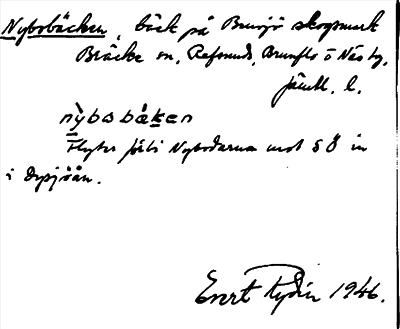 Nybobäcken, bäck på Bensjö skogsmark
Bräcke sn, Refsunds, Brunflo o Näs tg,
Jämtl. l.
nỳbobäken
Flyter förbi Nybodarna mot SÖ in
i Dypsjöån.
Evert Rydin 1946.